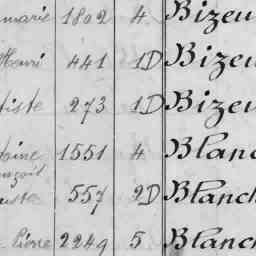 marie 1802 4 Bizeu
Henri 441 1D Bizeu
tiste 273 1D Bizeu
toine 1551 4 Blanc
nçois
uste 557 2D Blanch
Pierre 2249 5 Blanch